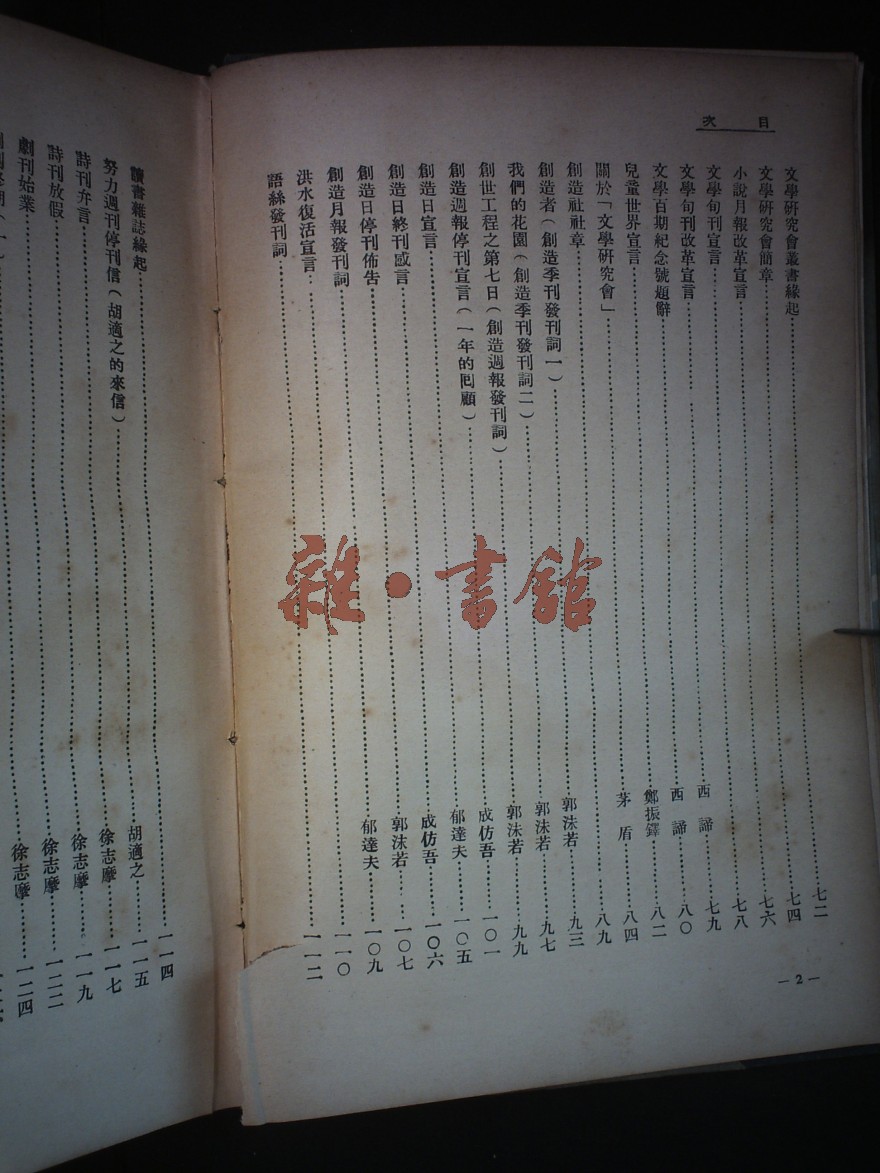 目次
文學研究會叢書緣起……七二
文學研究會簡章……七四
小說月報改革宣言……七六
文學旬刊宣言……七八
文學旬刊改革宣言……西諦……七九
文學百期紀念號題辭……西諦……八〇
兒童世界宣言……鄭振鐸……八二
關於「文學研究會」……茅盾……八四
創造社社章……八九
創造者(創造季刊發刊詞一)……郭沫若……九三
我們的花園(創造季刊發刊詞二)……郭沫若……九七
創世工程之第七日(創造週報發刊詞)……郭沫若……九九
創造週報停刊宣言(一年的回顧)……成仿吾……一〇一
創造日宣言……郁達夫……一〇五
創造日終刊感言……成仿吾……一〇六
創造日停刊佈告……郭沫若……一〇七
創造月報發刊詞……郁達夫……一〇九
洪水復活宣言……一一〇
語絲發刊詞……一一二
—2—
讀書雜誌緣起……一一四
努力週刊停刊信(胡適之的來信)……胡適之……一一五
詩刊弁言……徐志摩……一一七
詩刊放假……徐志摩……一一九
劇刊始業……徐志摩……一二二
徐志摩……一二四
雜·書館